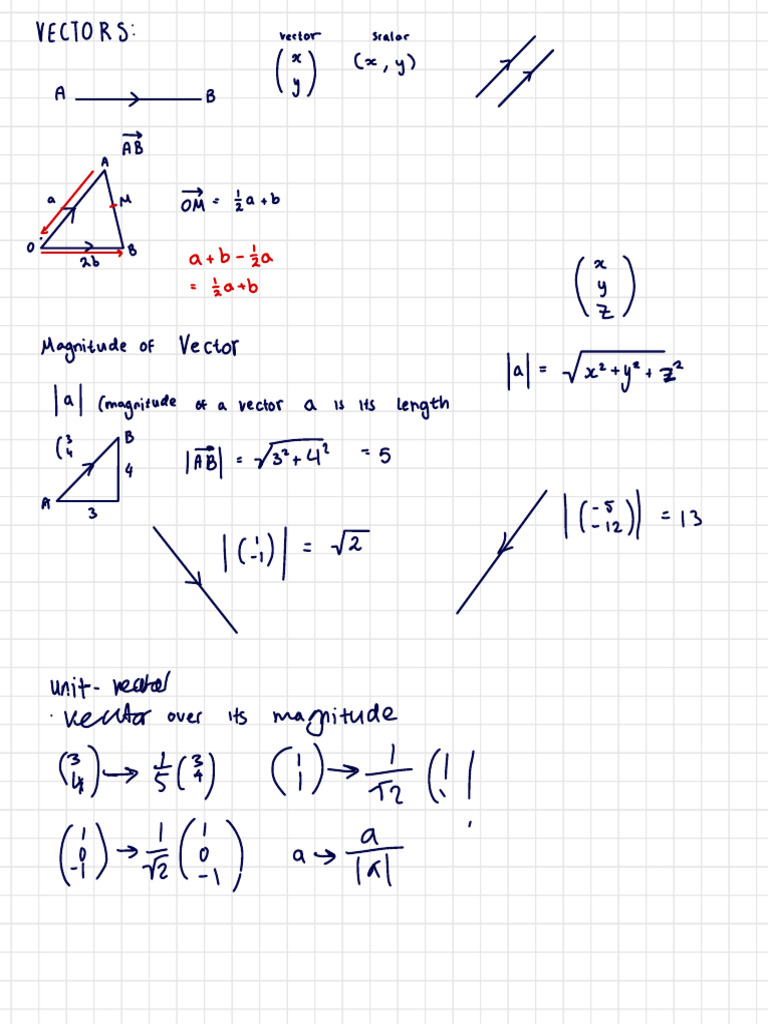 VECTORS:
vector scalar
(x y) (x, y)
A B
AB
A
a M
OM = ½a + b
O B
2b
a + b - ½a
= ½a + b
(x y z)
Magnitude of Vector
|a| = √x² + y² + z²
|a| (magnitude of a vector a is its length
(3 4 B
|AB| = √3² + 4² = 5
4
A
3
|(-5 -12)| = 13
|(1 -1)| = √2
unit - vector
· vector over its magnitude
(3 4) → 1/5 (3 4) (1 1) → 1/√2 (1 1
(1 0 -1) → 1/√2 (1 0 -1) a → a/|a|